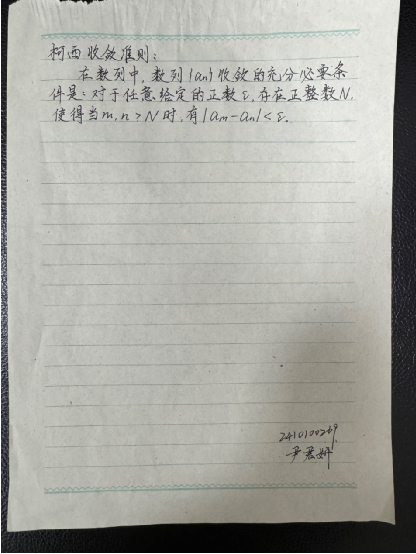 柯西收敛准则：
在数列中，数列{an}收敛的充分必要条
件是：对于任意给定的正数ε，存在正整数N，
使得当m,n>N时，有|am-an|<ε。
2410100269